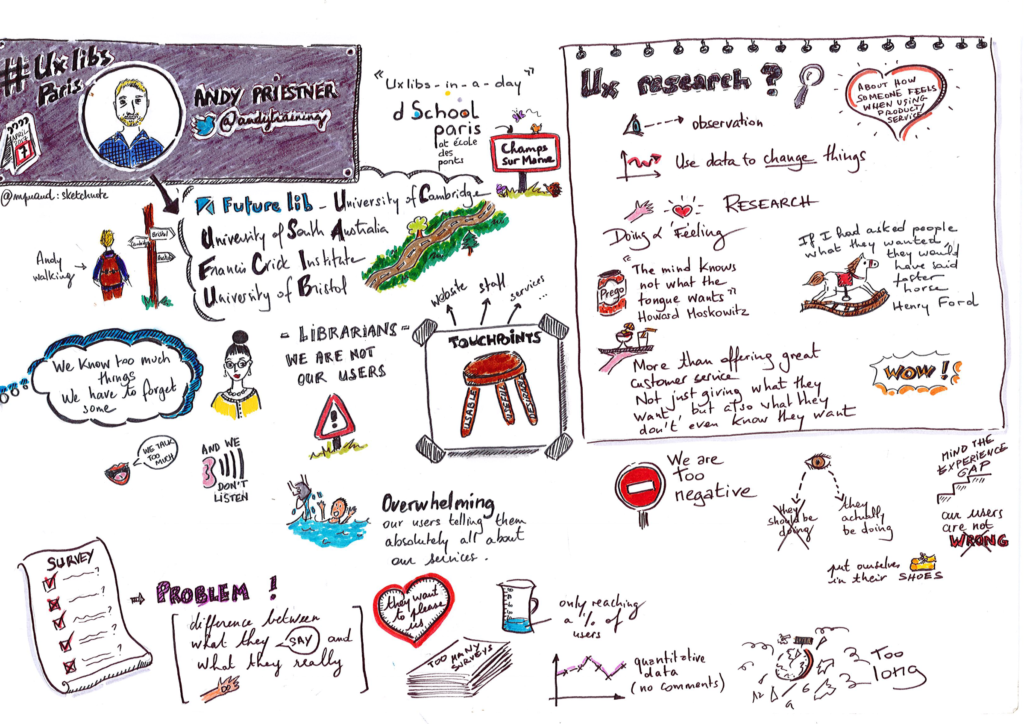 #Uxlibs
Paris
AVRIL
7
ANDY PRIESTNER
@andytraining
@mpuaud: sketchnote
"Uxlibs-in-a-day"
d School
paris
at école
des
ponts
Champs
sur Marne
Future lib - University of Cambridge
University of South Australia
Francis Crick Institute
University of Bristol
Andy
walking
Bristol
- LIBRARIANS -
WE ARE NOT
OUR USERS
We know too much
things
We have to forget
some
WE TALK
TOO
MUCH
AND WE
DON'T
LISTEN
website
staff
services
...
TOUCHPOINTS
USABLE
Overwhelming
our users telling them
absolutely all about
our services.
Ux research ?
ABOUT HOW
SOMEONE FEELS
WHEN USING
PRODUCT/
SERVICE
observation
Use data to change things
RESEARCH
Doing & Feeling
Prego
"The mind knows
not what the
tongue wants"
Howard Moskowitz
If I had asked people
what they wanted,
they would
have said
faster
horse
Henry Ford
More than offering great
customer service
Not just giving what they
want, but also what they
don't even know they want
WOW !
We are
Too
negative
they
should be
doing
they
actually
be doing
MIND THE
EXPERIENCE
GAP
our users
are not
WRONG
put ourselves
in their SHOES
SURVEY
?
?
?
?
?
PROBLEM !
difference between
what they SAY and
what they really
DO
they want
to please
us
TOO MANY
SURVEYS
only reaching
a % of
users
quantitative
data
(no comments)
12
6
9
3
3
Too
long